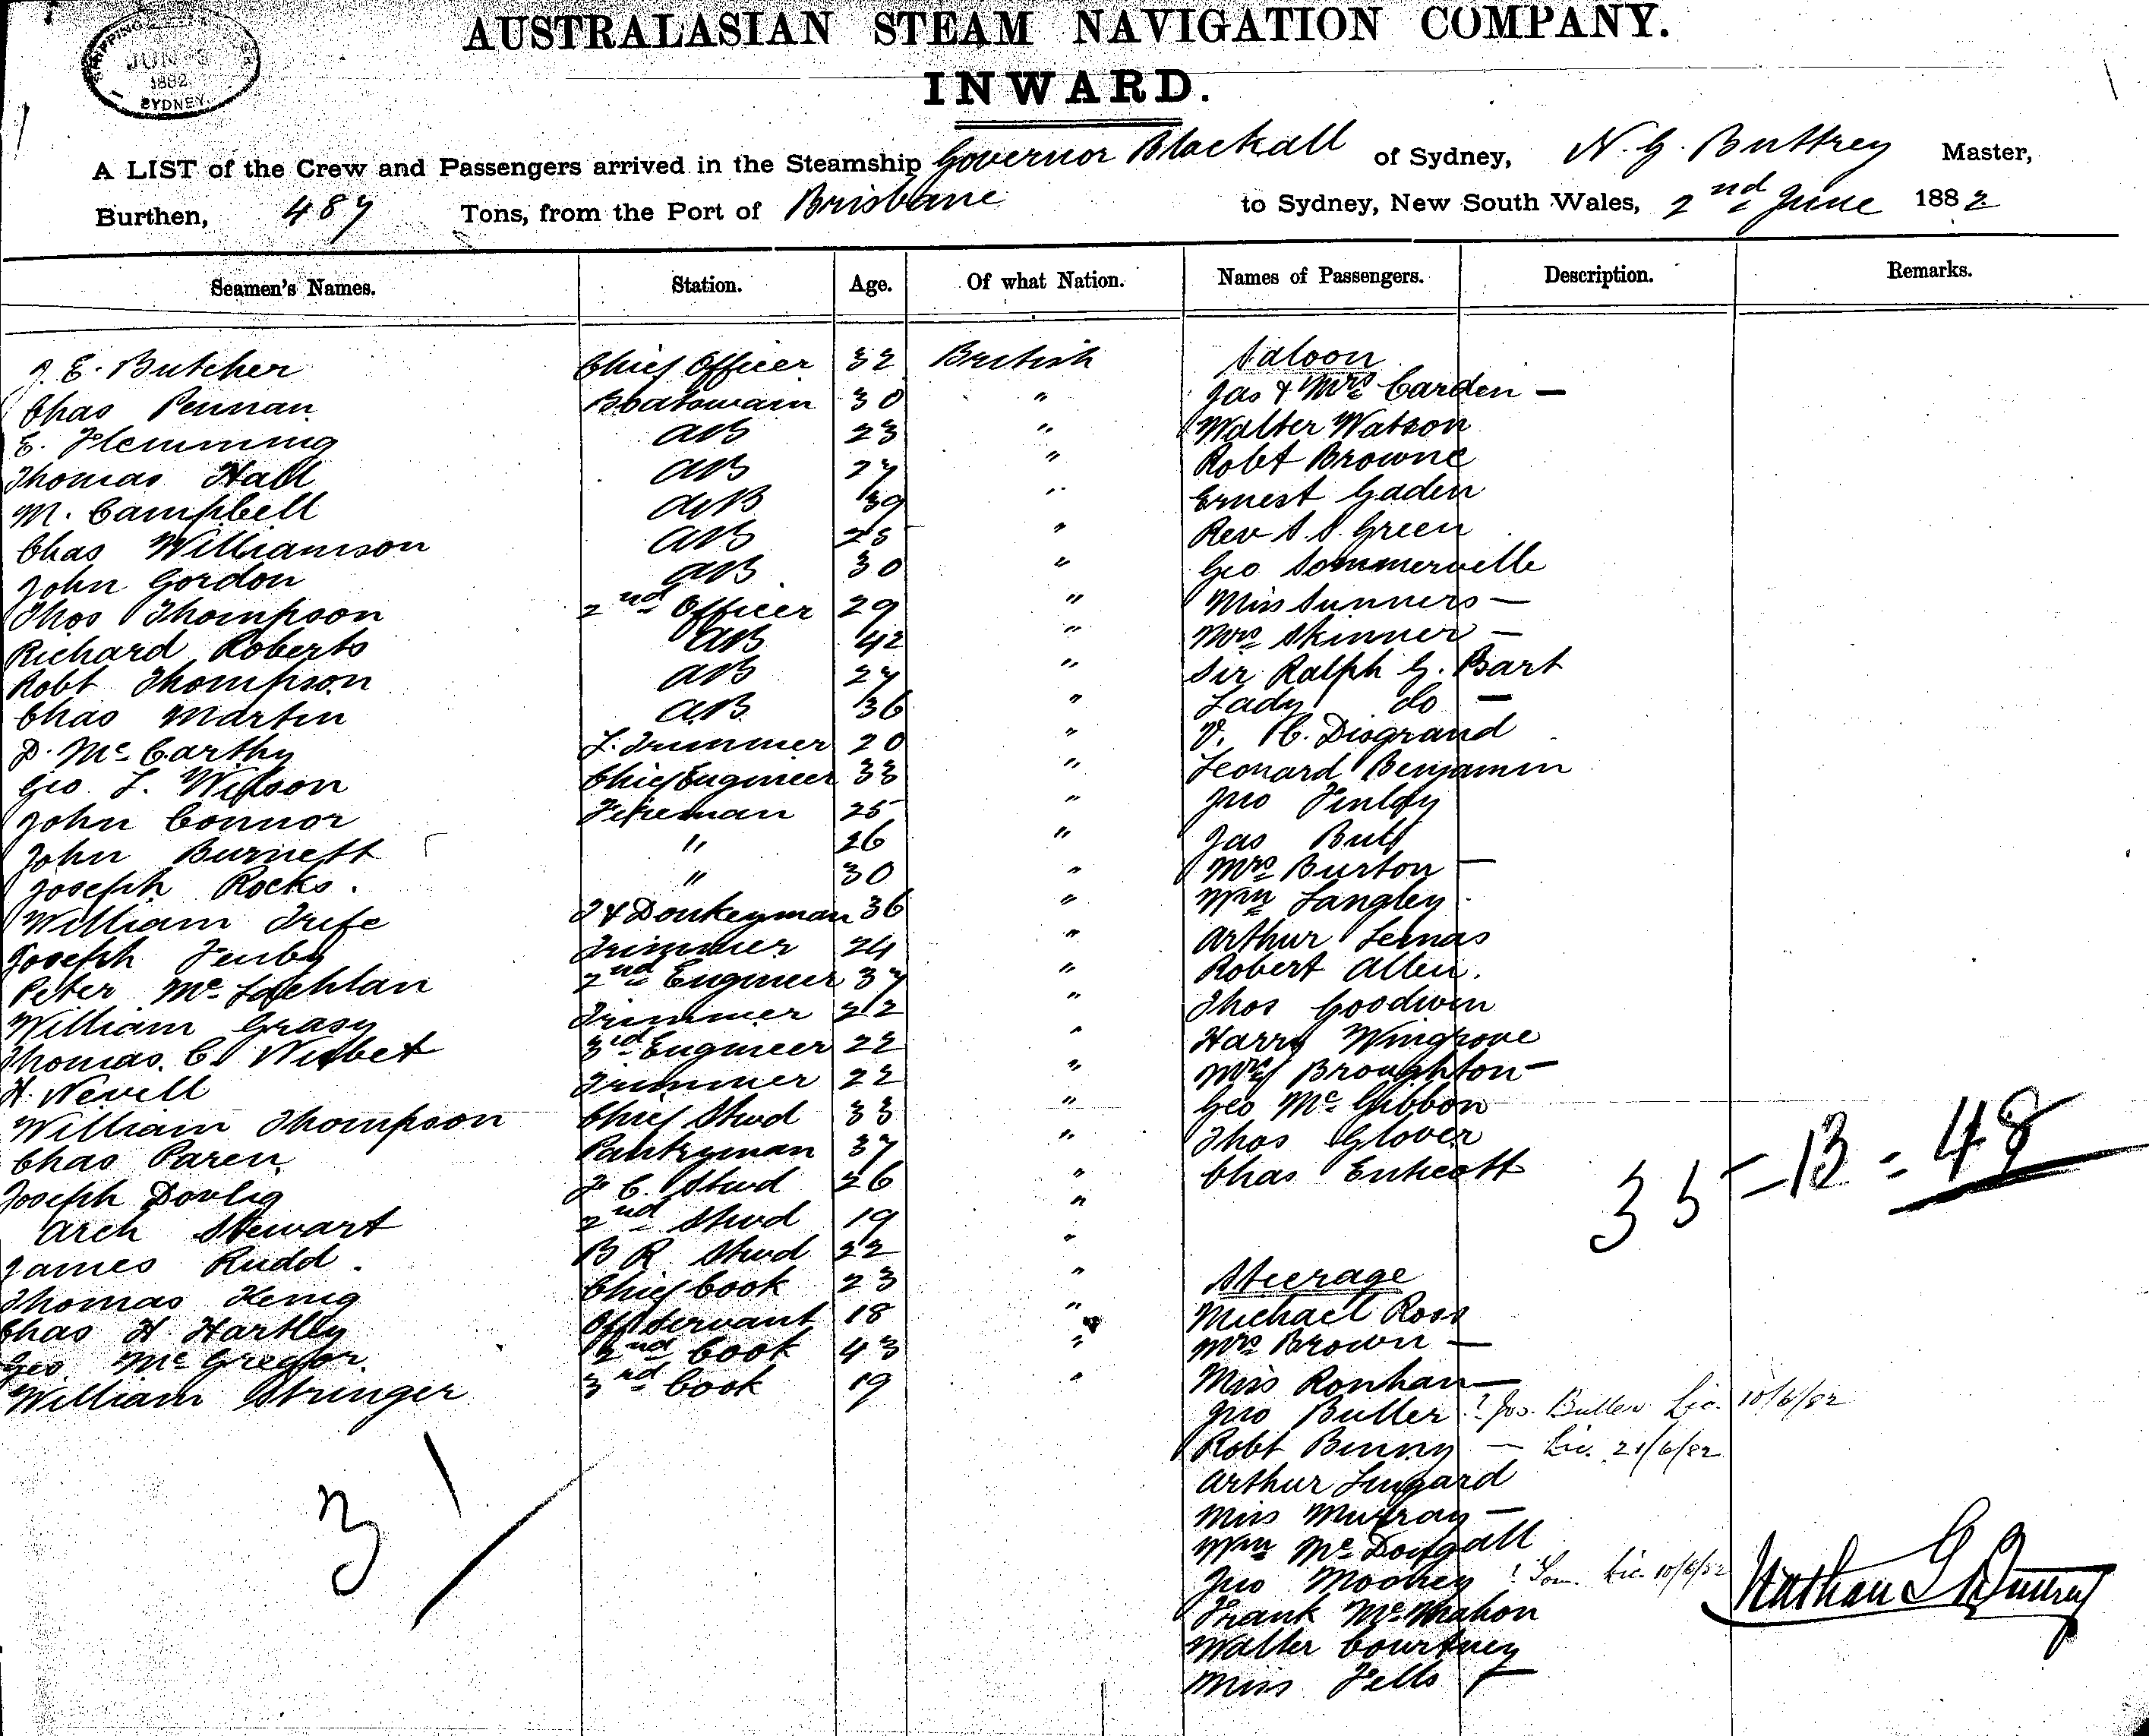 JUN 3
1882
SYDNEY
AUSTRALASIAN STEAM NAVIGATION COMPANY.
INWARD.
A LIST of the Crew and Passengers arrived in the Steamship Governor Blackall of Sydney, N. G. Buttrey Master,
Burthen, 487 Tons, from the Port of Brisbane to Sydney, New South Wales, 2nd June 1882
Seamen's Names. Station. Age. Of what Nation. Names of Passengers. Description. Remarks.
J. E. Butcher Chief Officer 32 British Saloon
Chas Pennan Boatswain 30 " Jas & Mrs Carden —
E. Flemming AB 23 " Walter Watson
Thomas Hall AB 27 " Robt Browne
M. Campbell AB 39 " Ernest Gaden
Chas Williamson AB 25 " Rev S. S. Green
John Gordon AB 30 " Geo Sommerville
Thos Thompson 2nd Officer 29 " Miss Sunners —
Richard Roberts AB 42 " Mrs Skinner —
Robt Thompson AB 27 " Sir Ralph G. Bart
Chas Martin AB 36 " Lady do —
D. McCarthy L. Trimmer 20 " V. C. Disgrand
Geo. L. Wilson Chief Engineer 33 " Leonard Benjamin
John Connor Fireman 25 " Jno Finlay
John Burnett " 26 " Jas Bull
Joseph Rocks. " 30 " Mrs Burton —
William Trife F & Donkeyman 36 " Wm Langley
Joseph Fenby Trimmer 24 " Arthur Lemas
Peter McLachlan 2nd Engineer 37 " Robert Allen.
William Grasy Trimmer 22 " Thos Goodwin
Thomas. C. Nisbet 3rd Engineer 22 " Harry Wingrove
H. Nevell Trimmer 22 " Mrs Broughton —
William Thompson Chief Stwd 33 " Geo McGibbon
Chas Paren Pantryman 37 " Thos Glover
Joseph Dovlig F. C. Stwd 26 " Chas Endicott
Arch Stewart 2nd Stwd 19 "
James Rudd. B R Stwd 22 "
35 - 13 = 48
Thomas Kenig Chief Cook 23 " Steerage
Chas H. Hartley Off Servant 18 " Michael Ross
Geo. McGregor. 2nd Cook 43 " Mrs Brown —
William Stringer 3rd Cook 19 " Miss Ronhan —
Jno Butler ? Jos. Butler Lic. 10/6/82
Robt Binny — Lic. 21/6/82
Arthur Lingard
31
Miss Murray —
Wm McDougall
Jno Mooney ? Lic. 10/6/82
Nathan G Buttrey
Frank McMahon
Walter Courtney
Miss Fells —